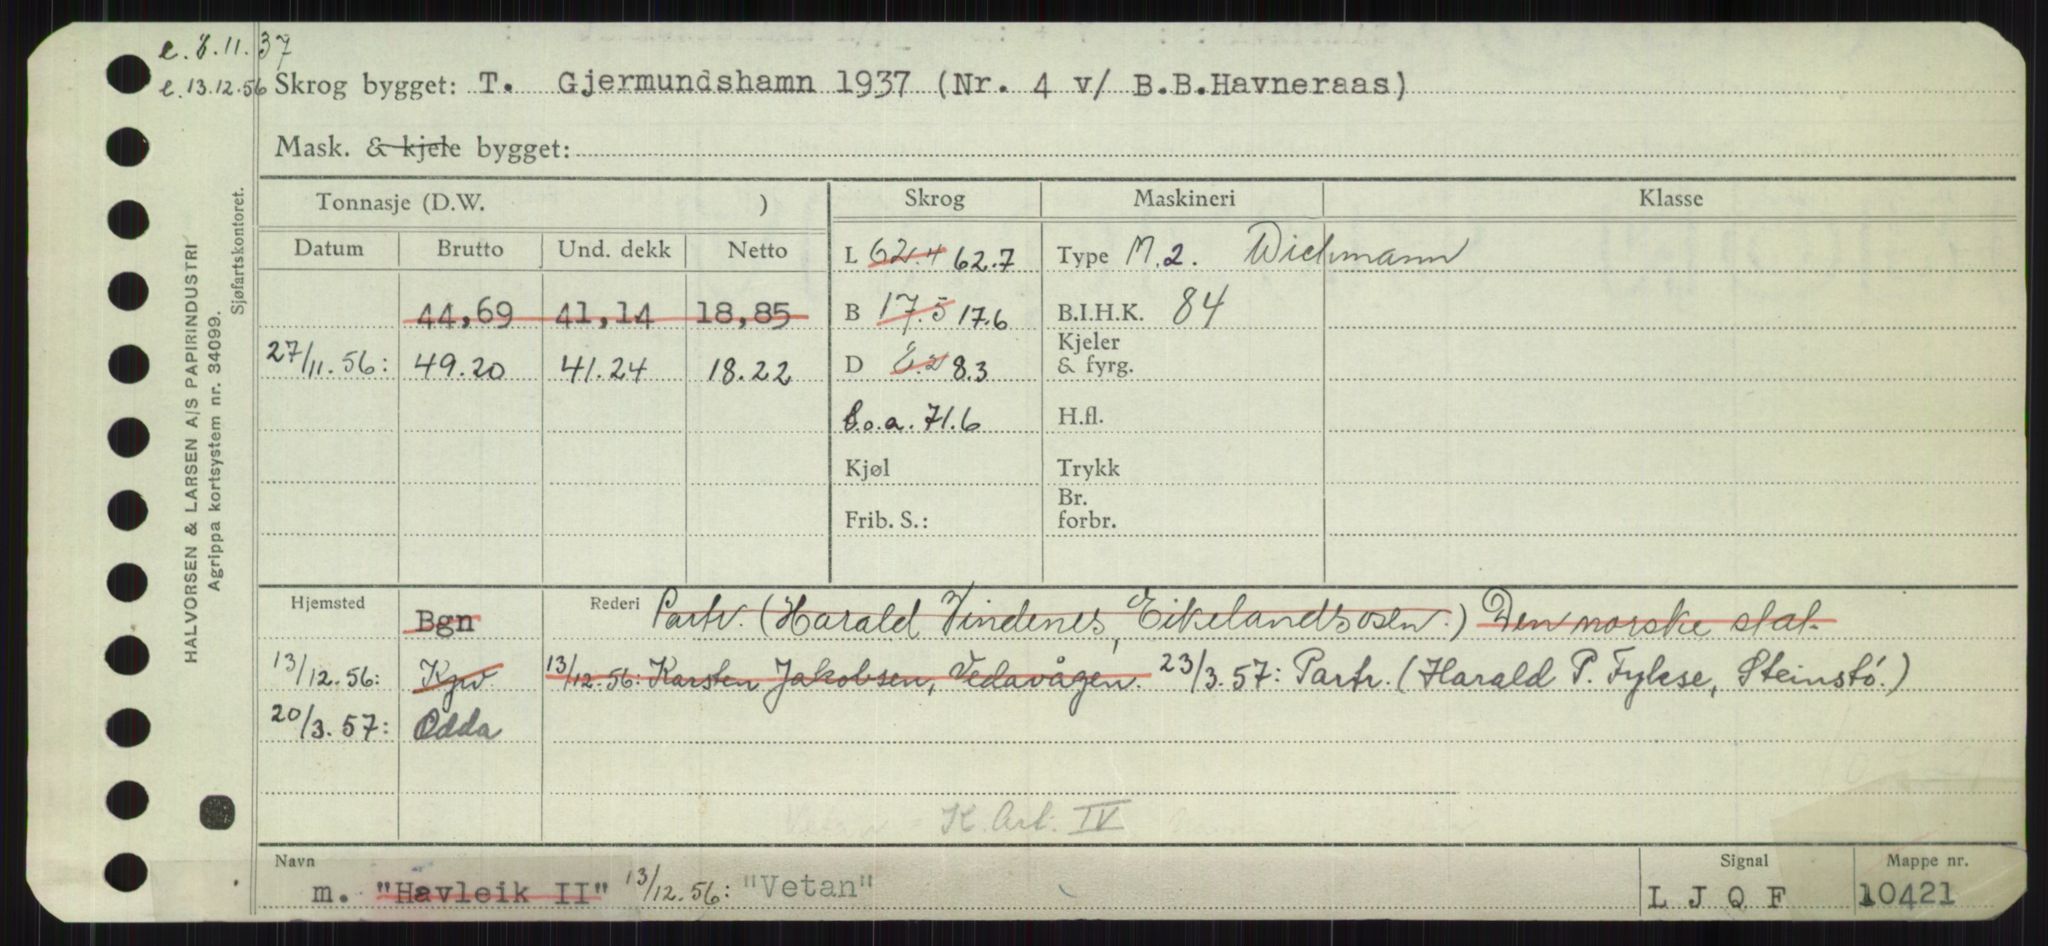 e. 8.11.37
e. 13.12.56 Skrog bygget: T. Gjermundshamn 1937 (Nr. 4 v/ B.B.Havneraas)
Mask. & kjele bygget:
HALVORSEN & LARSEN A/S PAPIRINDUSTRI
Agrippa kortsystem nr. 34099.
Sjøfartskontoret.
Tonnasje (D.W. ) Skrog Maskineri Klasse
Datum Brutto Und. dekk Netto L 62.4 62.7 Type M.2. Wichmann
44,69 41,14 18,85 B 17.5 17.6 B.I.H.K. 84
27/11.56: 49.20 41.24 18.22 D 8.3 Kjeler & fyrg.
l.o.a. 71.6 H.fl.
Kjøl Trykk
Frib. S.: Br. forbr.
Hjemsted Bgn Rederi Partr. (Harald Vindenes, Eikelandsosen.) Den norske stat.
13/12.56: Kpv. 13/12.56: Karsten Jakobsen, Vedavågen. 23/3.57: Partr. (Harald P. Fykse, Steinstø.)
20/3.57: Odda
K. Art. IV
Navn Signal Mappe nr.
m. "Havleik II" 13/12.56: "Vetan" L J Q F 10421